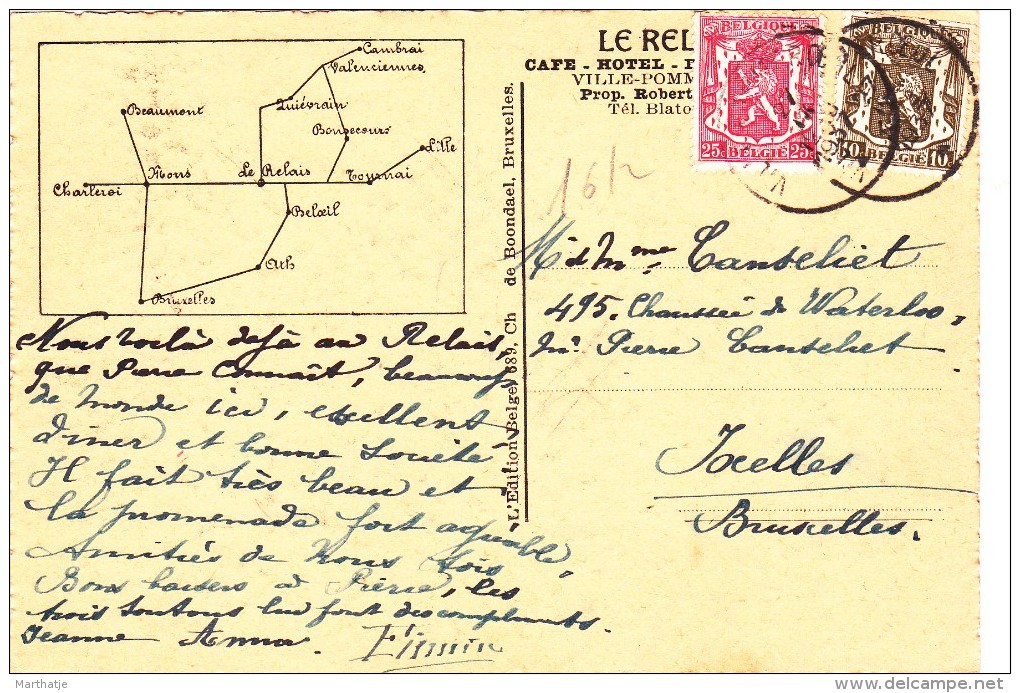 Cambrai
Valenciennes
Quiévrain
Beaumont
Bonsecours
Lille
Charleroi
Mons
Le Relais
Tournai
Belœil
Ath
Bruxelles
Nous voilà déjà au Relais,
que Pierre Connaît, beaucoup
de monde ici, excellent
diner et bonne Société
Il fait très beau et
la promenade fort agréable,
Amitiés de nous trois
Bons baisers à Pierre, les
trois toutous lui font des compliments.
Jeanne Anna. Firmin
"L'Edition Belge", 689, Ch de Boondael, Bruxelles.
LE REL
CAFE - HOTEL -
VILLE-POMM
Prop. Robert
Tél. Blato
BELGIQUE
25c BELGIE 25c
BELGIQUE
10c BELGIE 10c
16/2
Mr & Mme Canseliet
495. Chaussée de Waterloo,
Mr Pierre Canseliet
Ixelles
Bruxelles.
Marthatje
delcampe.net